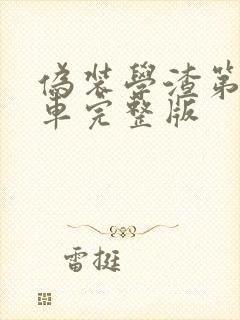 偽裝學渣第
車完整版
雷挺